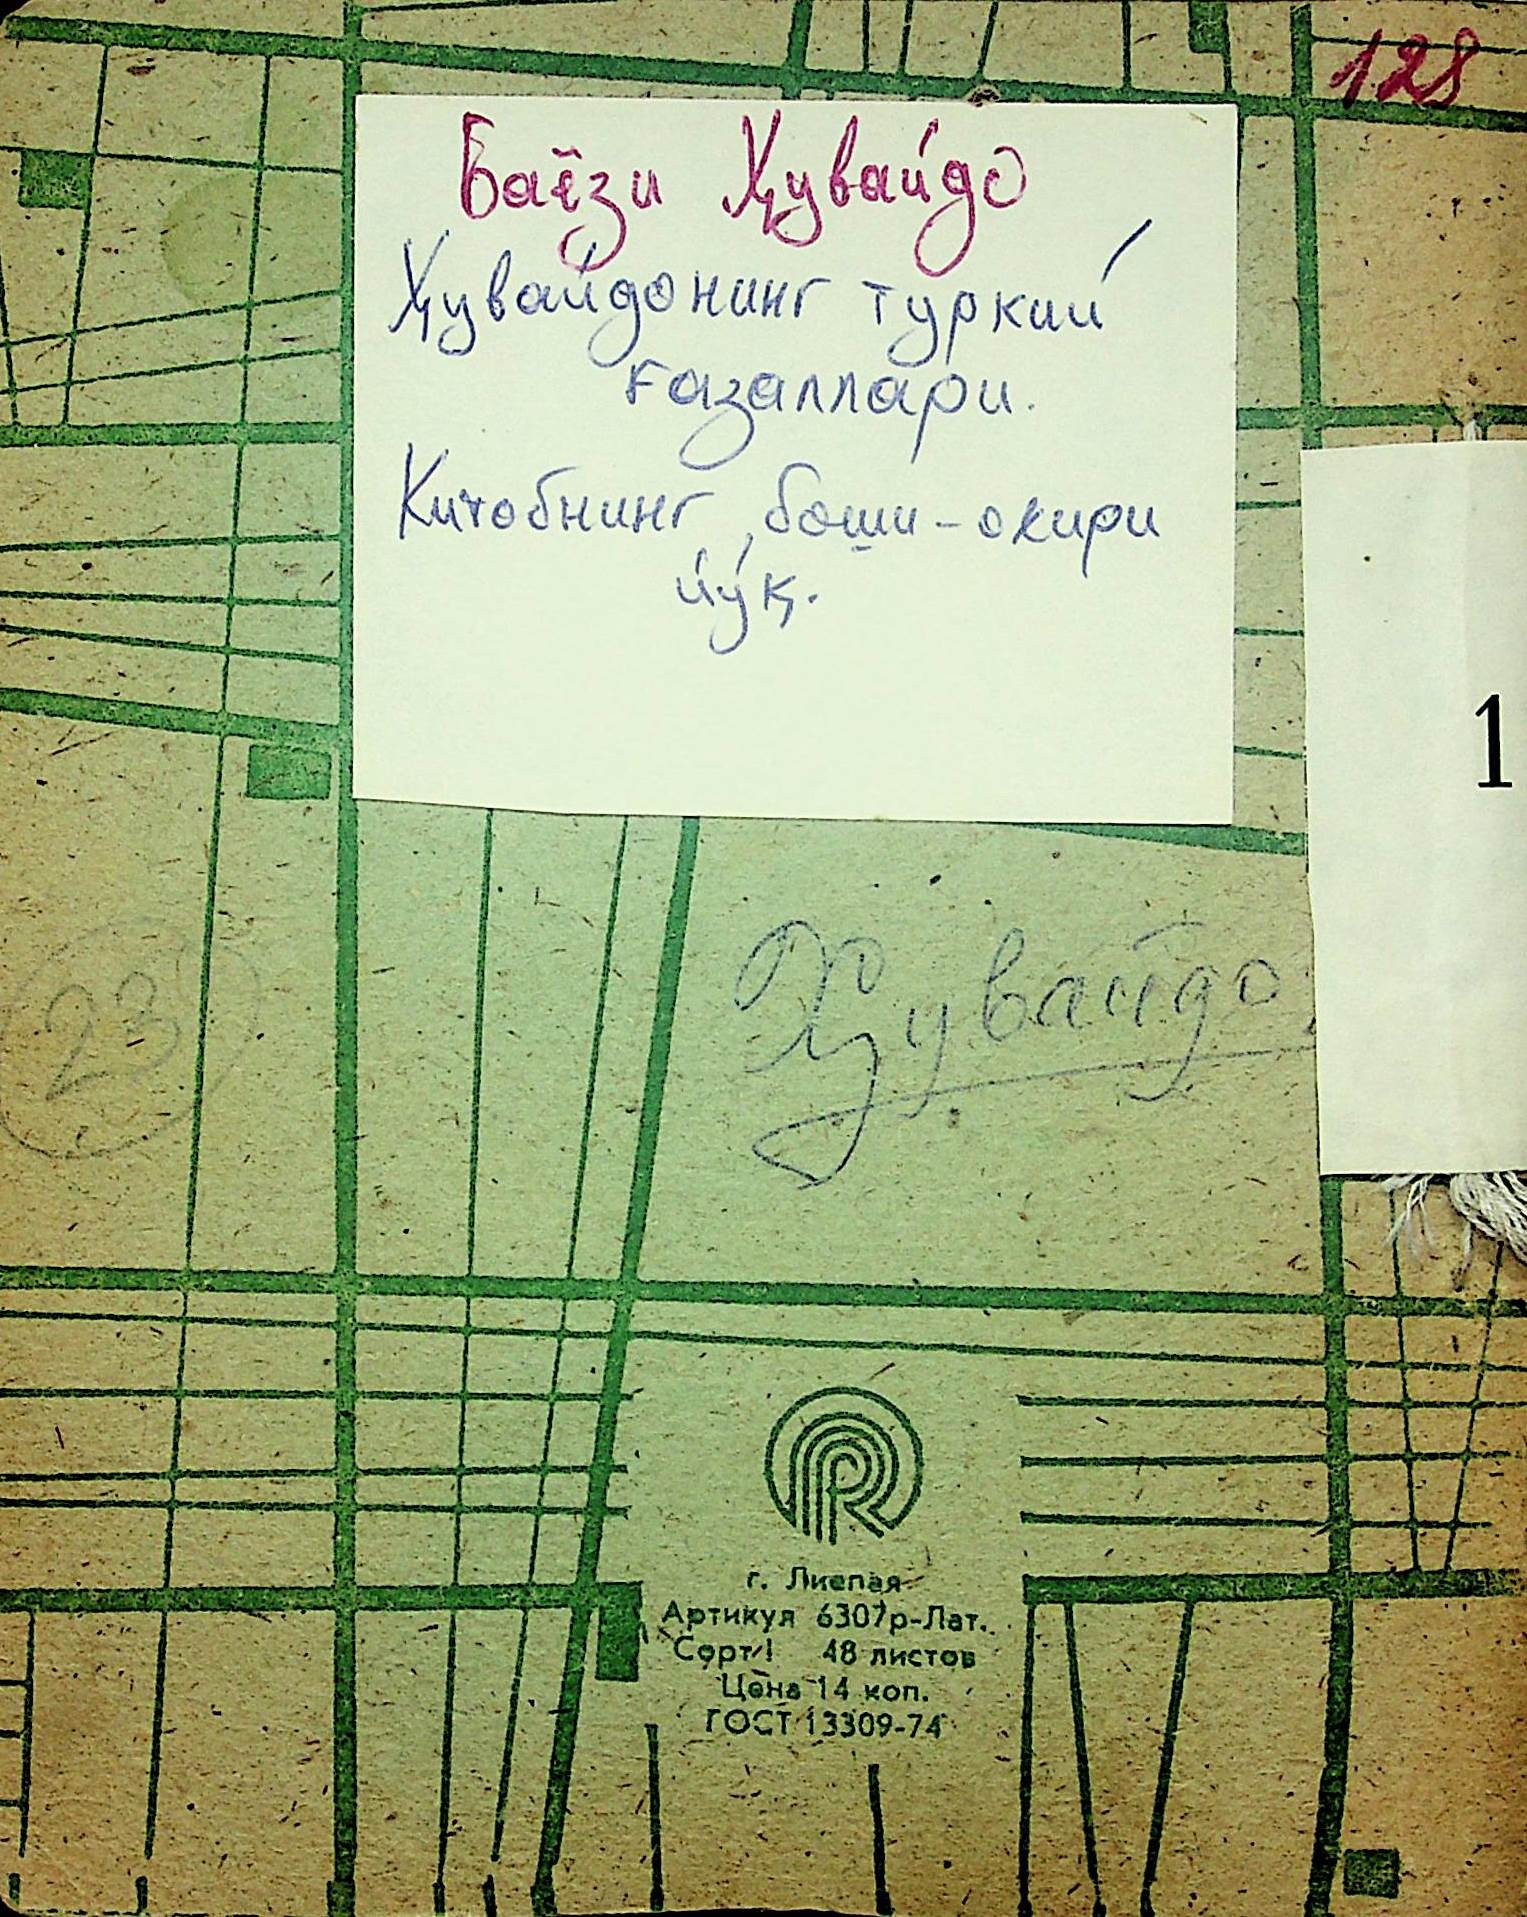 128
Баёзи Ҳувайдо
Ҳувайдонинг туркий
ғазаллари.
Китобнинг боши-охири
йўқ.
1
Ҳувайдо
23
г. Лиепая
Артикул 6307р-Лат.
Сорт 1 48 листов
Цена 14 коп.
ГОСТ 13309-74